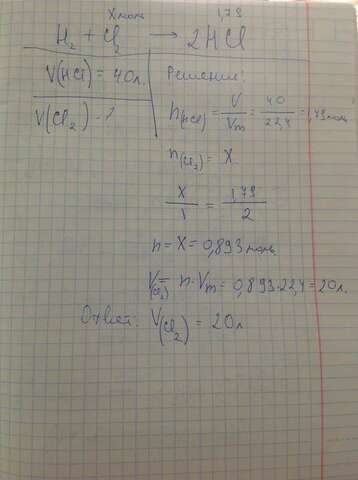 X моль 1,79
H₂ + Cl₂ → 2HCl
V(HCl) = 40л.
V(Cl₂) - ?
Решение:
n(HCl) = V/Vm = 40/22,4 = 1,79 моль
n(Cl₂) = X.
X/1 = 1,79/2
n = X = 0,893 моль
V(Cl₂) = n·Vm = 0,893·22,4 = 20л.
Ответ: V(Cl₂) = 20л